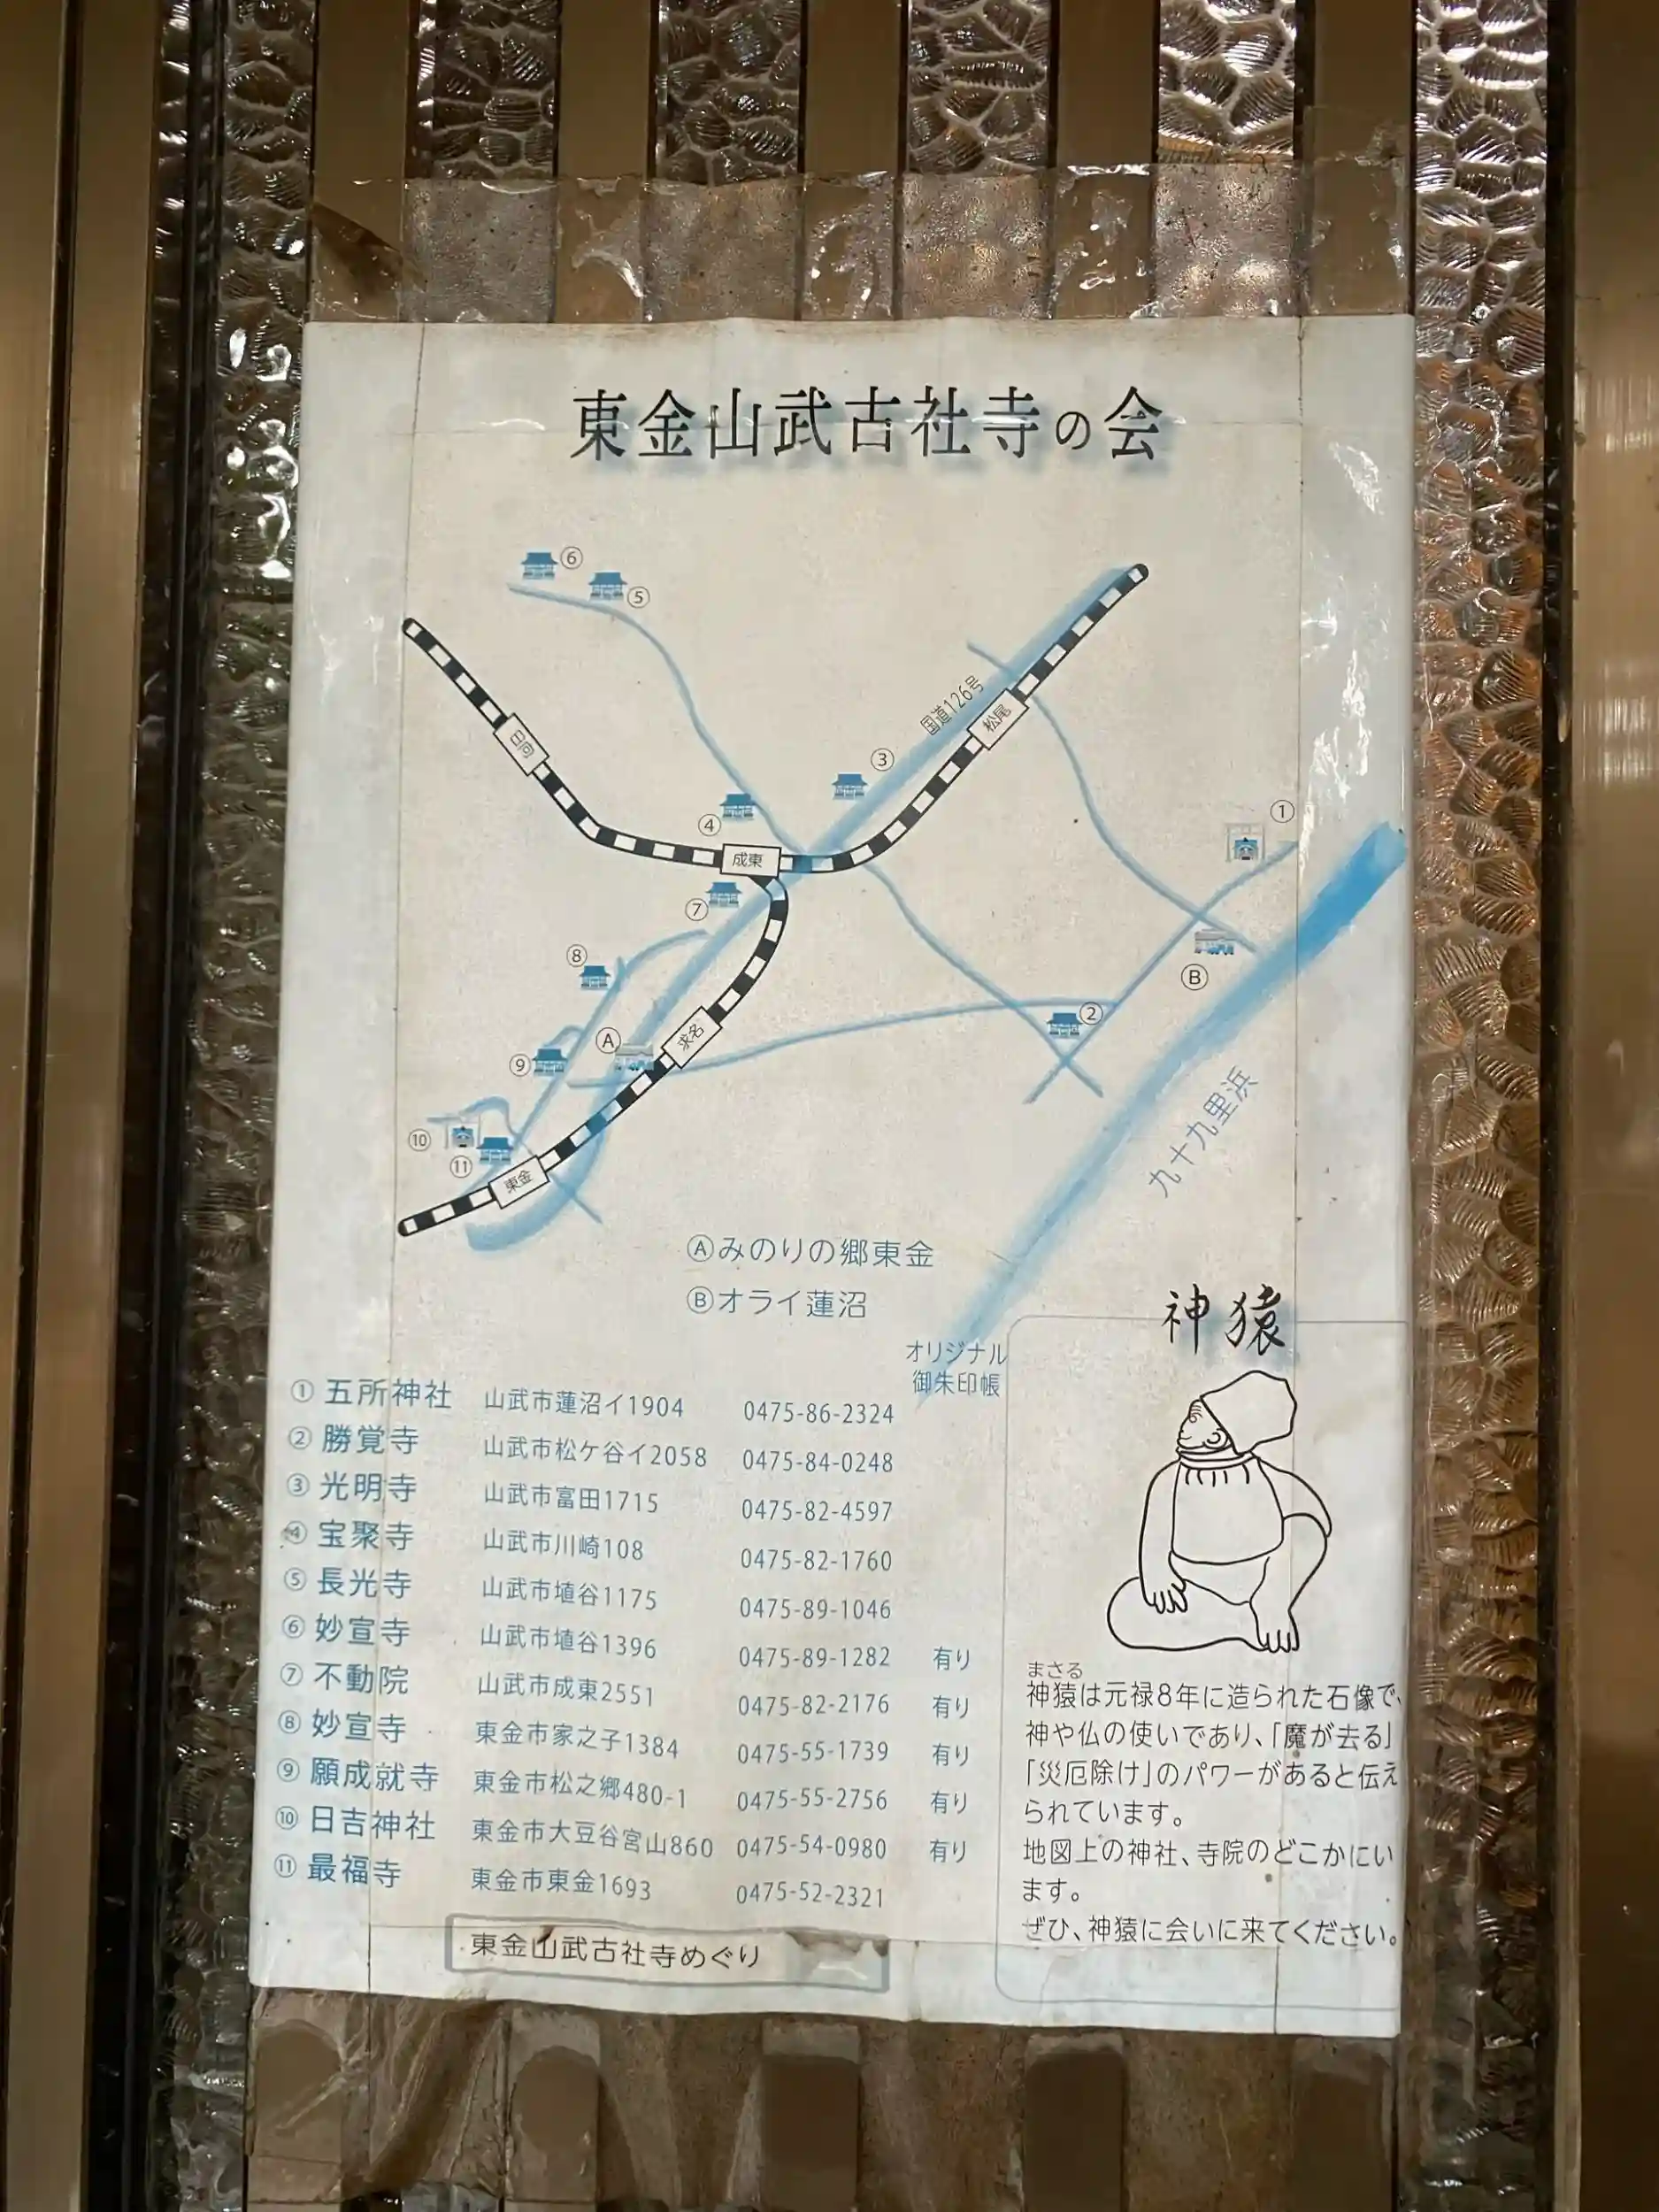 東金山武古社寺の会
⑥
⑤
国道126号
松尾
日向
③
①
④
成東
⑦
⑧
Ⓑ
②
Ⓐ
求名
⑨
⑩
⑪
東金
九十九里浜
Ⓐみのりの郷東金
Ⓑオライ蓮沼
オリジナル
御朱印帳
① 五所神社 山武市蓮沼イ1904 0475-86-2324
② 勝覚寺 山武市松ケ谷イ2058 0475-84-0248
③ 光明寺 山武市富田1715 0475-82-4597
④ 宝聚寺 山武市川崎108 0475-82-1760
⑤ 長光寺 山武市埴谷1175 0475-89-1046
⑥ 妙宣寺 山武市埴谷1396 0475-89-1282 有り
⑦ 不動院 山武市成東2551 0475-82-2176 有り
⑧ 妙宣寺 東金市家之子1384 0475-55-1739 有り
⑨ 願成就寺 東金市松之郷480-1 0475-55-2756 有り
⑩ 日吉神社 東金市大豆谷宮山860 0475-54-0980 有り
⑪ 最福寺 東金市東金1693 0475-52-2321
東金山武古社寺めぐり
神猿
まさる
神猿は元禄8年に造られた石像で、
神や仏の使いであり、「魔が去る」
「災厄除け」のパワーがあると伝え
られています。
地図上の神社、寺院のどこかにい
ます。
ぜひ、神猿に会いに来てください。